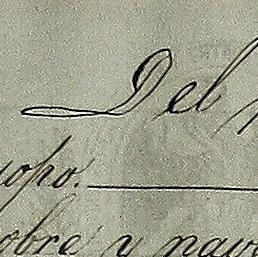 Del
opo.
obre y nav